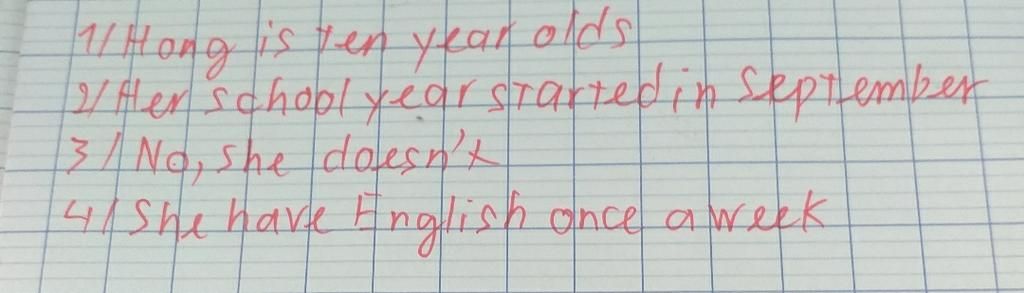 1/ Hong is ten year olds
2/ Her school year started in September
3/ No, she doesn't
4/ She have English once a week